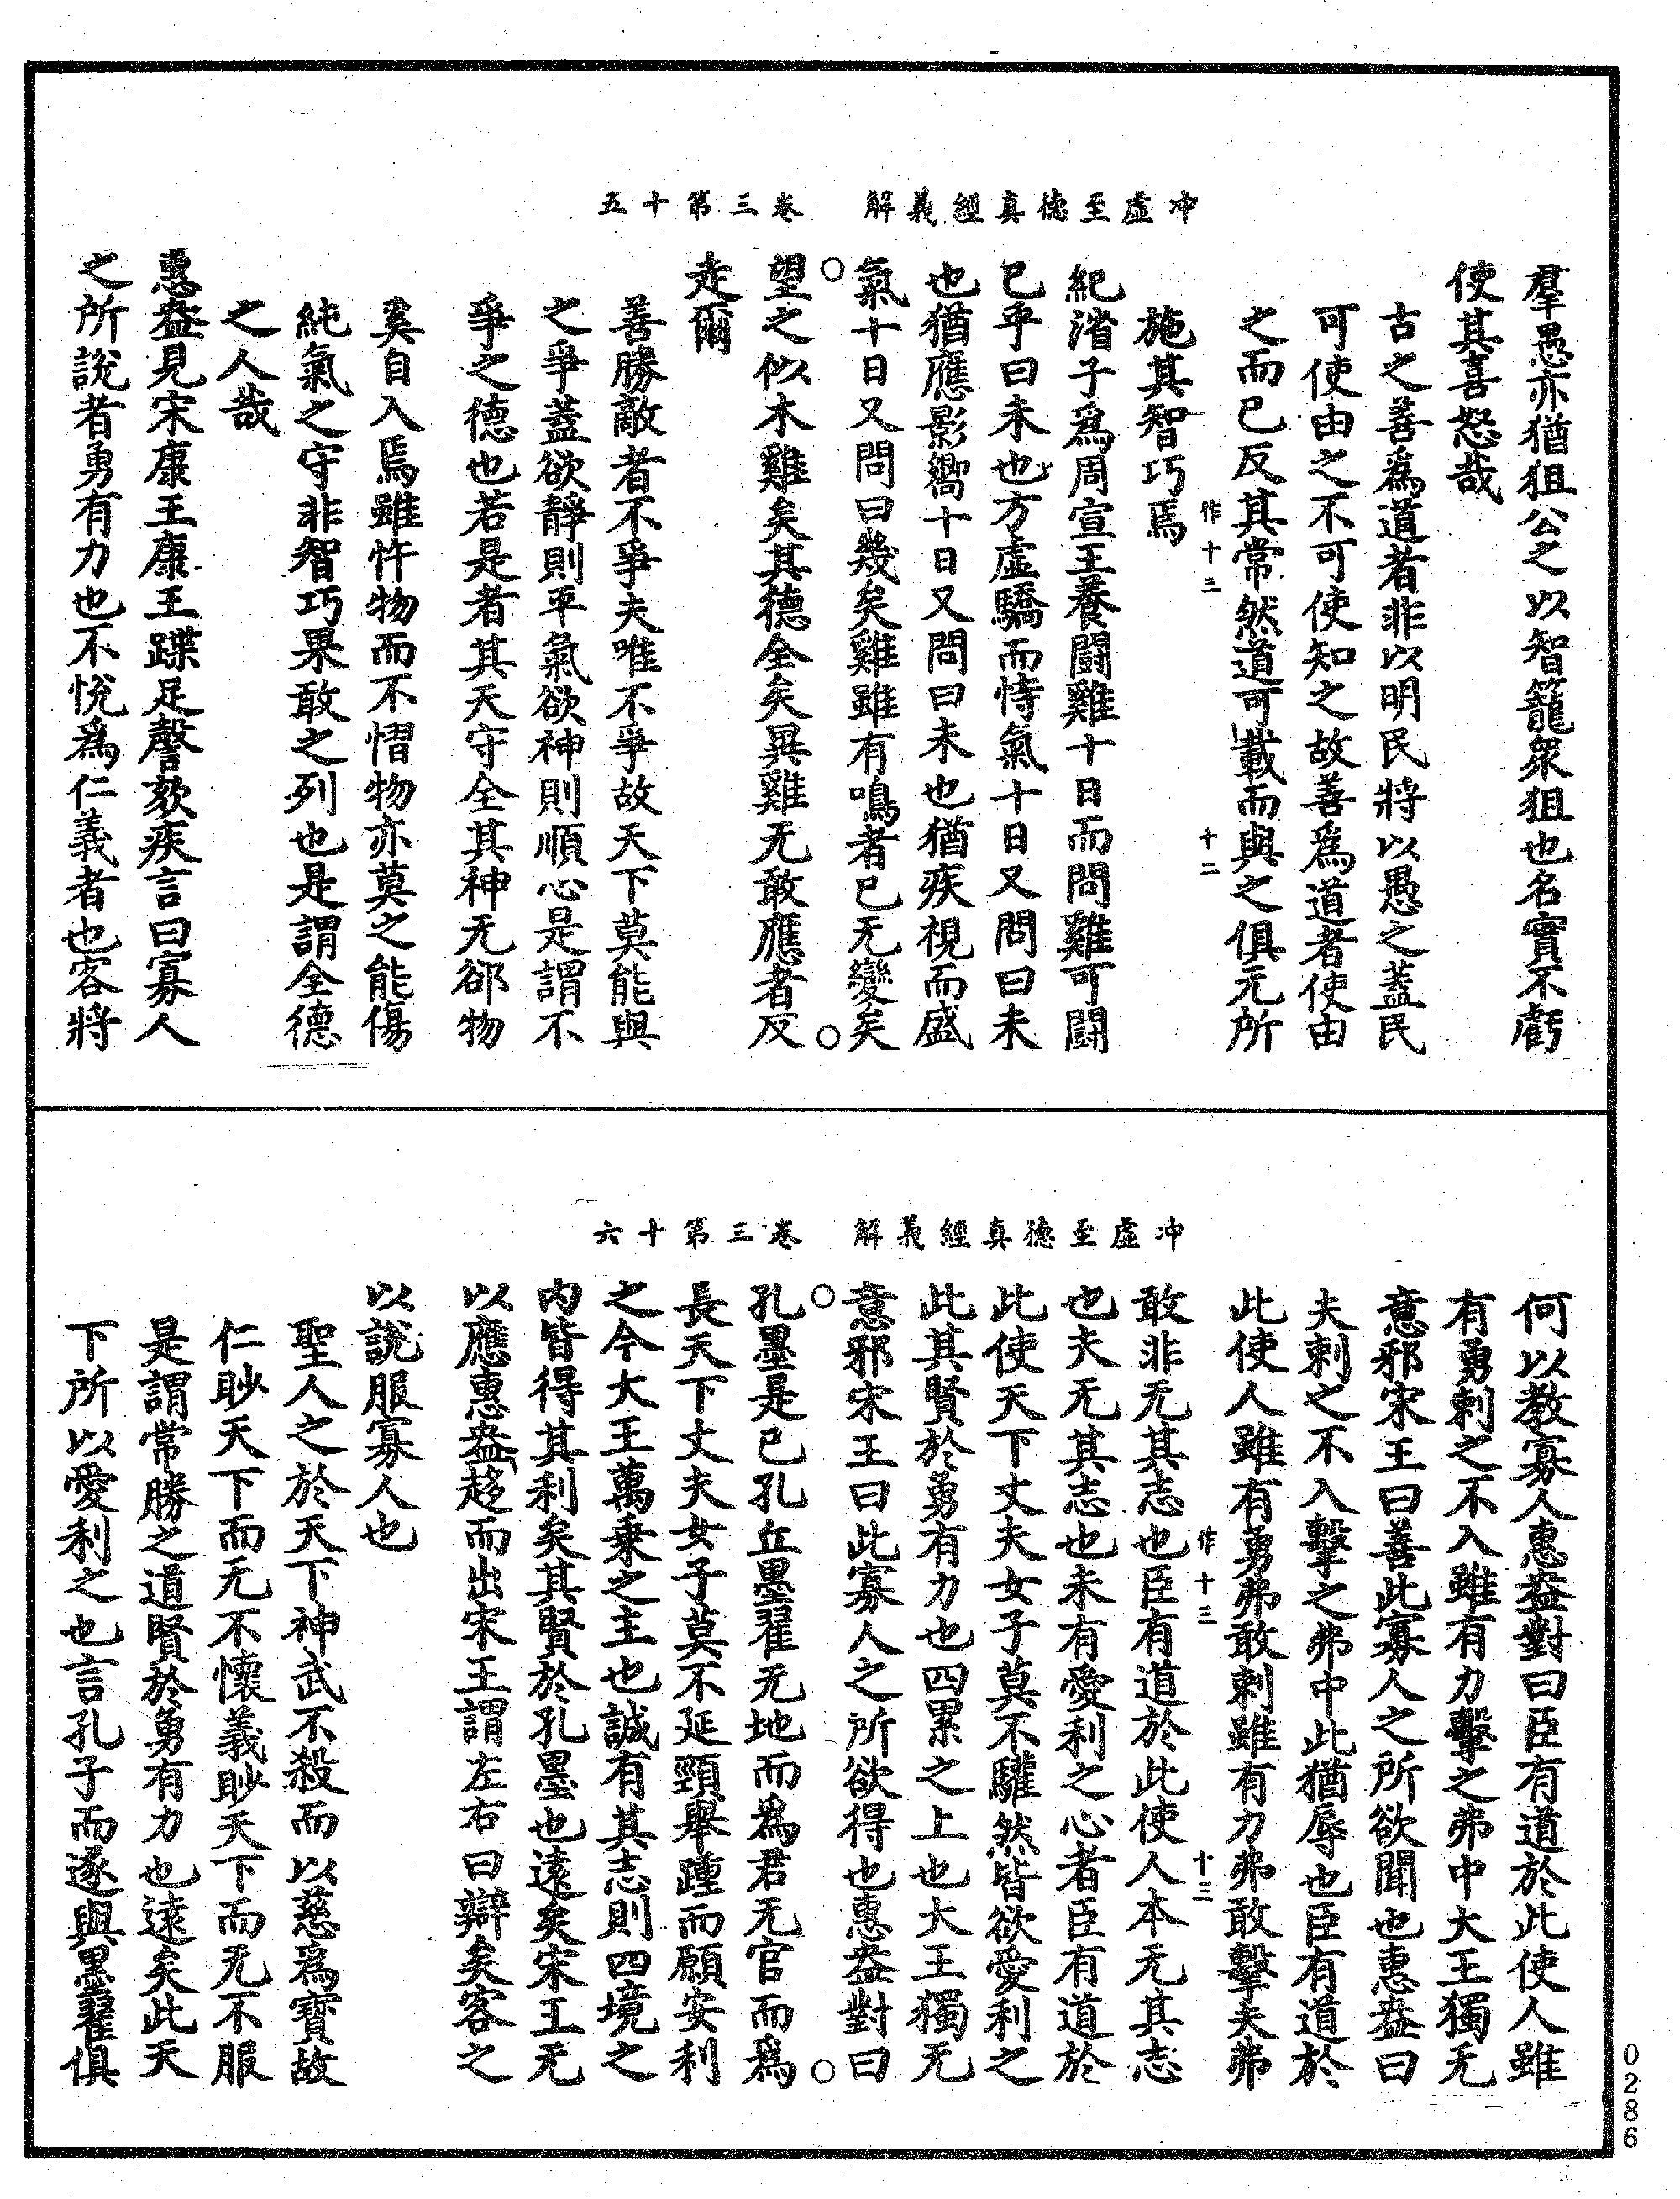 冲虛至德真經義解　卷三第十五
羣愚亦猶狙公之以智籠衆狙也名實不虧
使其喜怒哉
古之善爲道者非以明民將以愚之蓋民
可使由之不可使知之故善爲道者使由
之而已反其常然道可載而與之俱无所
作十三　十二
施其智巧焉
紀渻子爲周宣王養鬪雞十日而問雞可鬪
已乎曰未也方虛驕而恃氣十日又問曰未
也猶應影嚮十日又問曰未也猶疾視而盛
氣十日又問曰幾矣雞雖有鳴者已无變矣
○　○
望之似木雞矣其德全矣異雞无敢應者反
走爾
善勝敵者不爭夫唯不爭故天下莫能與
之爭蓋欲靜則平氣欲神則順心是謂不
爭之德也若是者其天守全其神无郤物
奚自入焉雖忤物而不慴物亦莫之能傷
純氣之守非智巧果敢之列也是謂全德
之人哉
惠盎見宋康王康王蹀足謦欬疾言曰寡人
之所說者勇有力也不悅爲仁義者也客將
冲虛至德真經義解　卷三第十六
何以教寡人惠盎對曰臣有道於此使人雖
有勇刺之不入雖有力擊之弗中大王獨无
意邪宋王曰善此寡人之所欲聞也惠盎曰
夫刺之不入擊之弗中此猶辱也臣有道於
此使人雖有勇弗敢刺雖有力弗敢擊夫弗
作十三　十三
敢非无其志也臣有道於此使人本无其志
也夫无其志也未有愛利之心者臣有道於
此使天下丈夫女子莫不驩然皆欲愛利之
此其賢於勇有力也四累之上也大王獨无
意邪宋王曰此寡人之所欲得也惠盎對曰
○　○
孔墨是已孔丘墨翟无地而爲君无官而爲
長天下丈夫女子莫不延頸舉踵而願安利
之今大王萬乗之主也誠有其志則四境之
内皆得其利矣其賢於孔墨也遠矣宋王无
以應惠盎趍而出宋王謂左右曰辯矣客之
以說服寡人也
聖人之於天下神武不殺而以慈爲寶故
仁眇天下而无不懷義眇天下而无不服
是謂常勝之道賢於勇有力也遠矣此天
下所以愛利之也言孔子而遂與墨翟俱
0286